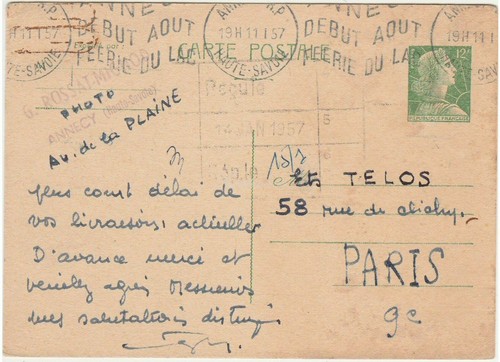 ANNECY
DEBUT AOUT
FEERIE DU LAC
19H 11 1 57
HAUTE-SAVOIE
ANNECY
DEBUT AOUT
FEERIE DU LAC
19H 11 1 57
HAUTE-SAVOIE
CARTE POSTALE
12F
REPUBLIQUE FRANÇAISE
PHOTO
G. ROSSAT-MIGNOD
ANNECY (Haute-Savoie)
Av. de la PLAINE
14 JAN 1957
Ets TELOS
58 rue de clichy
PARIS
9e
plus court délai de
vos livraisons actuelles
D'avance merci et
veuillez agréer Messieurs
mes salutations distinguées